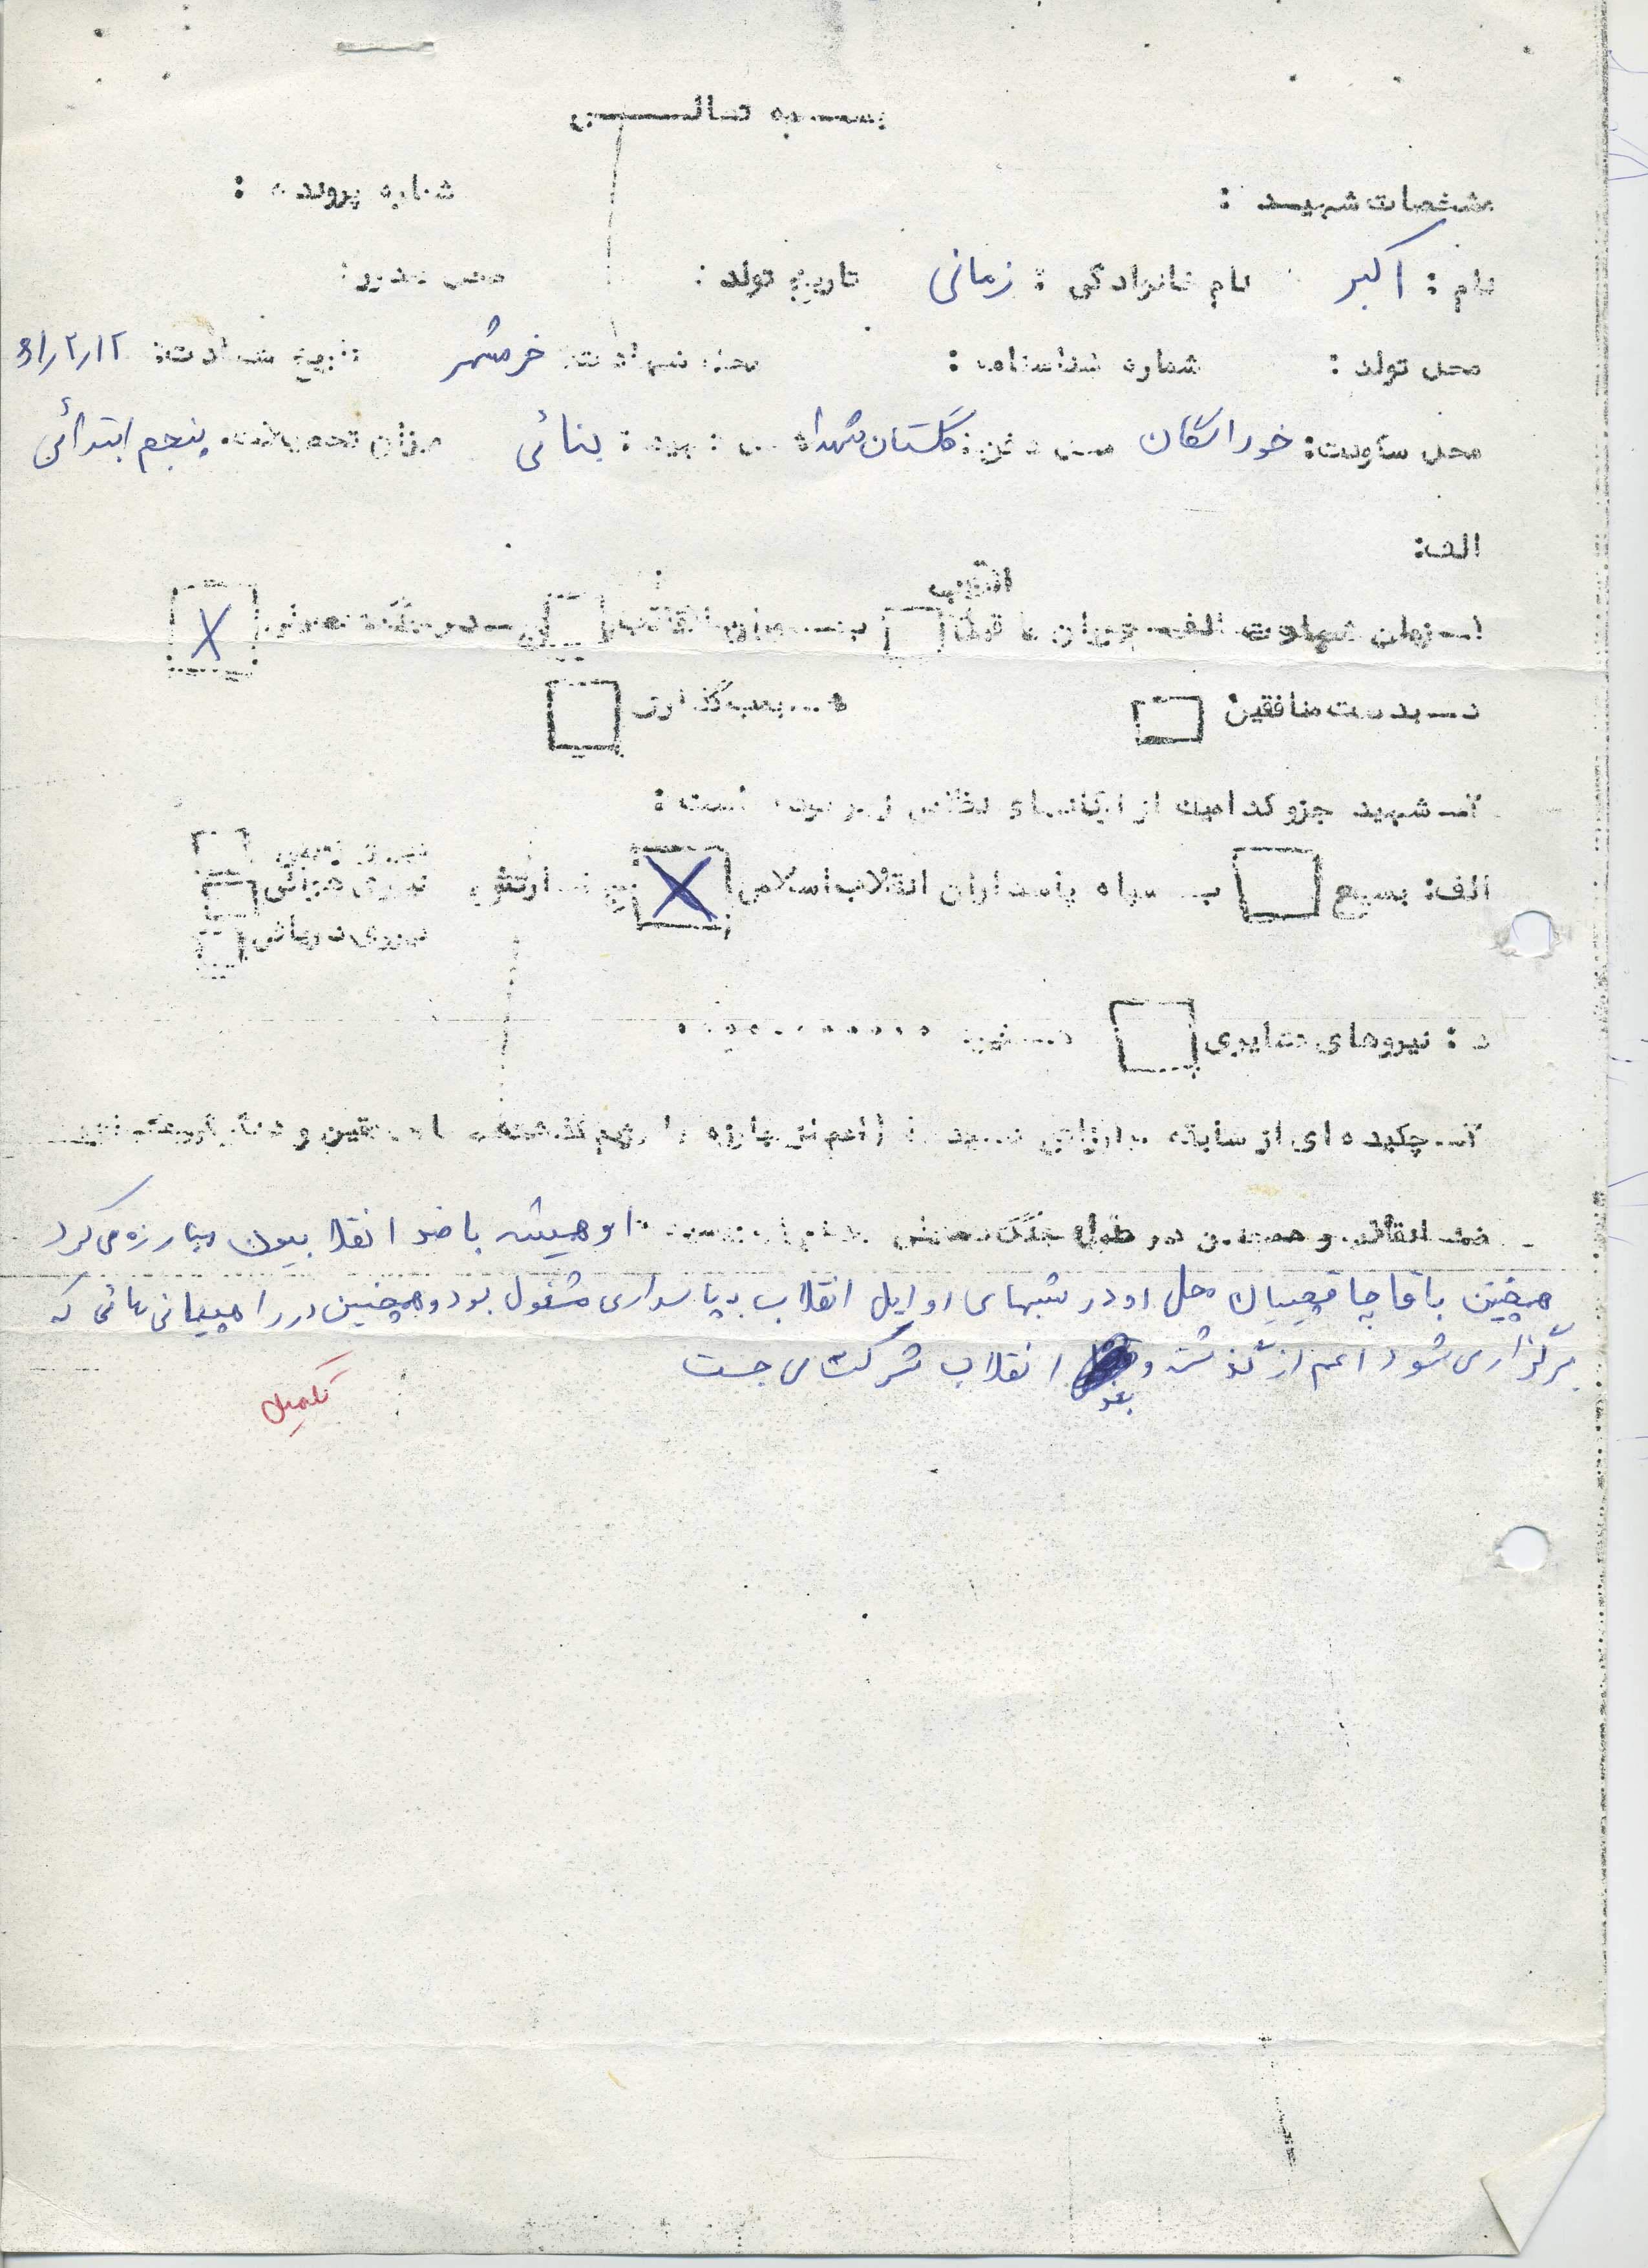 بسمه تعالی
مشخصات شهید : شماره پرونده :
نام : اکبر نام خانوادگی : زمانی تاریخ تولد :
محل تولد : شماره شناسنامه : محل شهادت: خرمشهر تاریخ شهادت: ۶۱/۲/۱۲
محل سکونت: خوراسگان محل دفن: گلستان شهدا بنائی میزان تحصیلات پنجم ابتدائی
الف:
انقلاب
۱ـ زمان شهادت الف ـ جریان ما قبل ب ـ جریان انقلاب ج ـ در جنگ تحمیلی X
د ـ بدست منافقین ه ـ بمب گذاری
۲ـ شهید جزو کدامیک از ارگانهای نظامی زیر بوده است :
الف: بسیج ب ـ سپاه پاسداران انقلاب اسلامی X ج ـ ارتش نیروی زمینی
نیروی هوائی
نیروی دریائی
د : نیروهای عشایری
۳ـ چکیده ای از سابقه مبارزاتی شهید : (اعم از مبارزه با رژیم گذشته ، منافقین و دیگر گروهکهای
ضد انقلاب و همچنین در طول جنگ تحمیلی او همیشه با ضد انقلابیون مبارزه می کرد
همچنین با قاچاقچییان محل او در شبهای اوایل انقلاب به پاسداری مشغول بود و همچنین در راهپیمانی هائی که
برگزاری شود اعم از گذشته و بعد انقلاب شرکت می جست
تکمیل